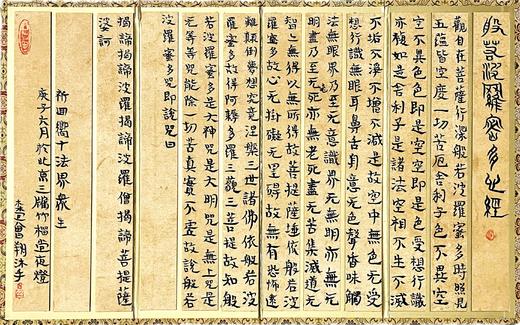 般若波羅蜜多心經
觀自在菩薩行深般若波羅蜜多時照見
五蘊皆空度一切苦厄舍利子色不異空
空不異色色即是空空即是色受想行識
亦複如是舍利子是諸法空相不生不滅
不垢不淨不增不減是故空中无色无受
想行識无眼耳鼻舌身意无色聲香味觸
法無眼界乃至无意識界无無明亦無无
明盡乃至无死亦無老死盡无苦集滅道无
智亦無得以無所得故菩提薩埵依般若波
羅蜜多故心无掛礙无罣礙故無有恐怖遠
離顛倒夢想究竟涅槃三世諸佛依般若波
羅蜜多故得阿耨多羅三藐三菩提故知般
若波羅蜜多是大神咒是大明咒是無上咒是
无等等咒能除一切苦真實不虛故說般若
波羅蜜多咒即說咒曰
揭諦揭諦波羅揭諦波羅僧揭諦菩提薩
婆訶
祈回嚮十法界衆生
庚子六月於北京三牖竹堂夜燈
會翔沐手